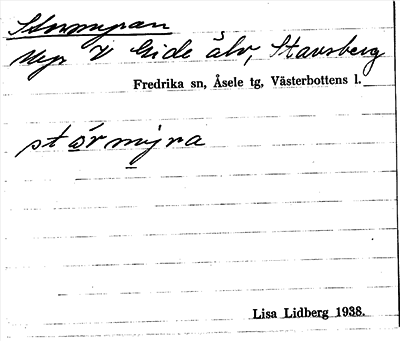 Stormyran
Myr V Gide älv, Stavsberg
Fredrika sn, Åsele tg, Västerbottens l.
stórmyra
Lisa Lidberg 1938.